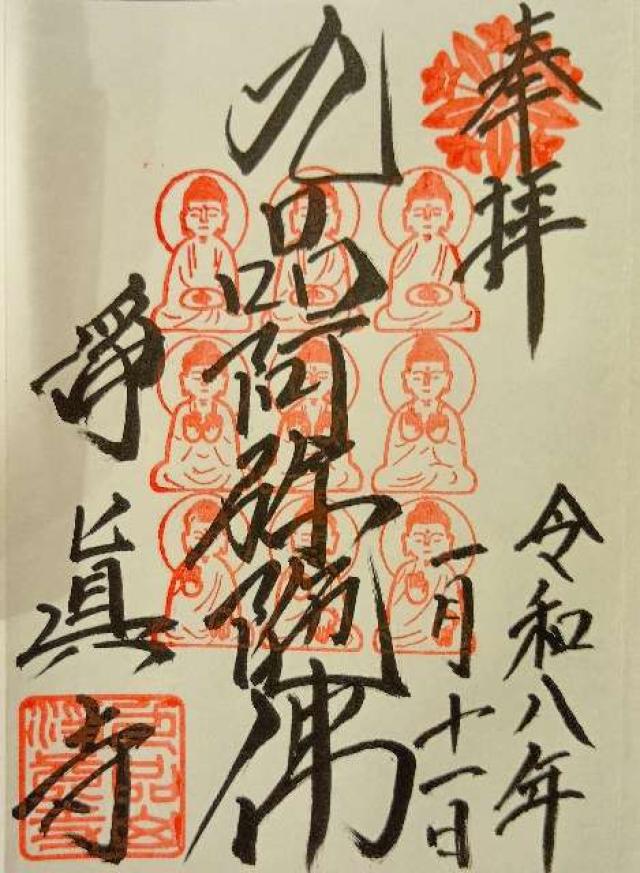 奉拝
令和八年
一月十一日
九品阿弥陀佛
淨眞寺